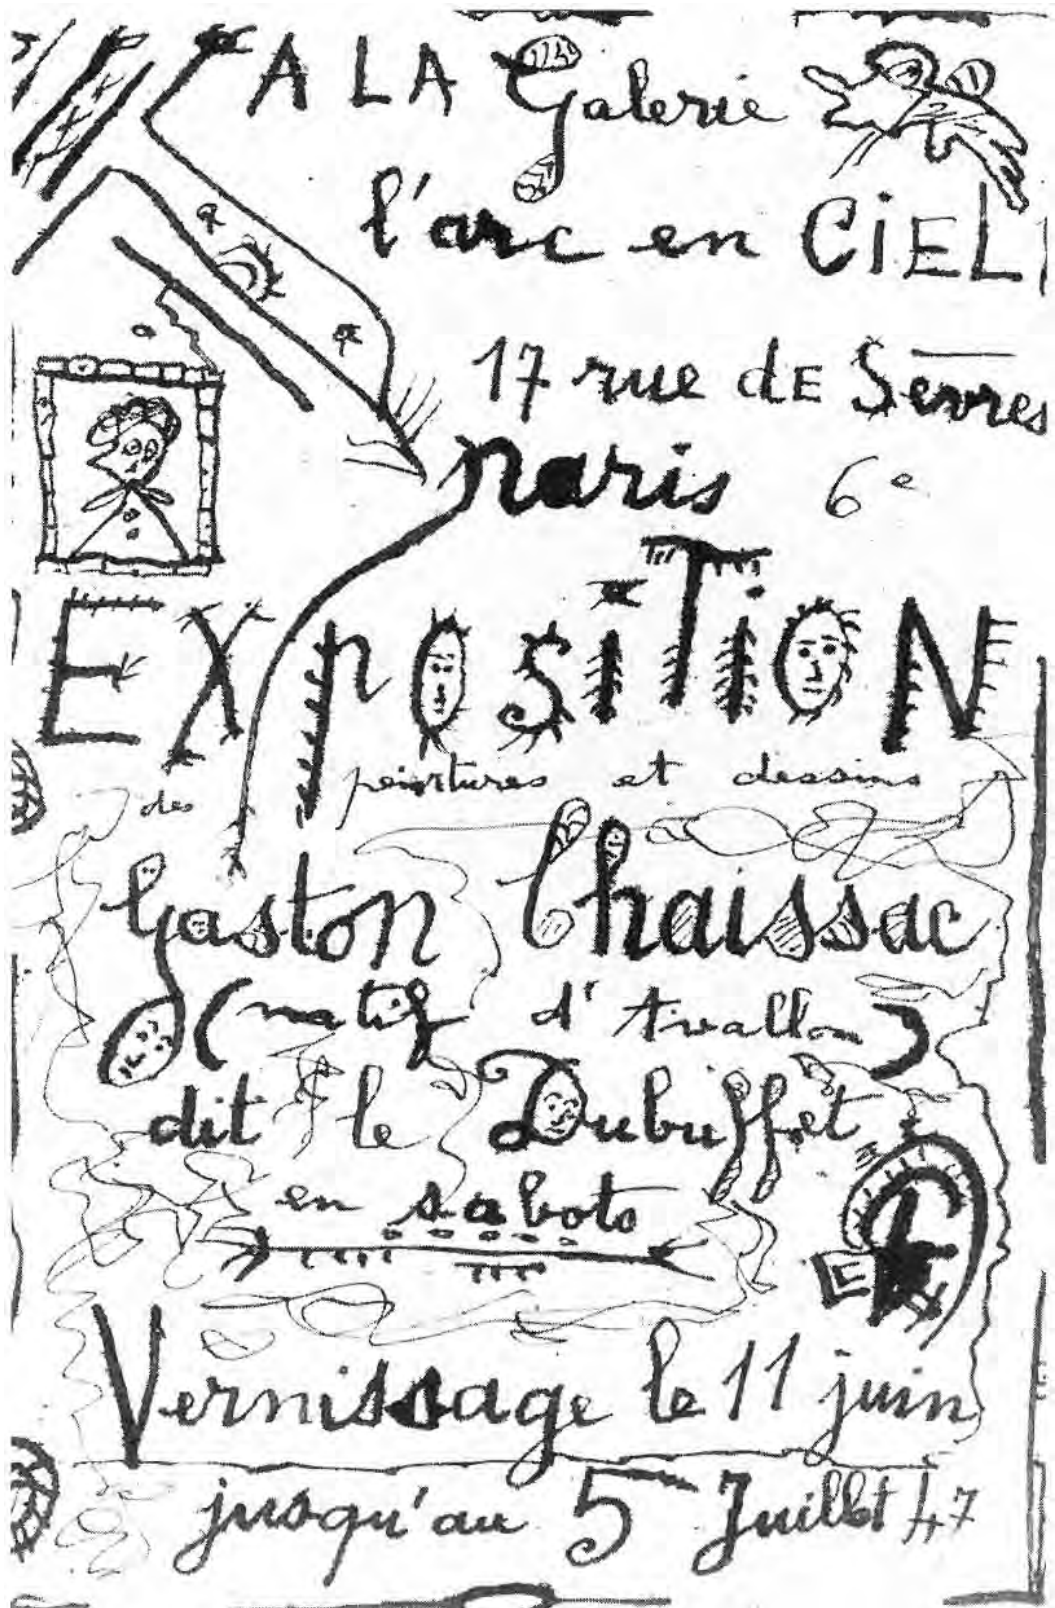 A LA Galerie
l'arc en CiEL
17 rue dE Sèvres
Paris 6e
EXPOSiTiON
des peintures et dessins
Gaston Chaissac
(natif d'Avallon)
dit le Dubuffet
en sabots
Vernissage le 11 juin
jusqu'au 5 Juillet 47